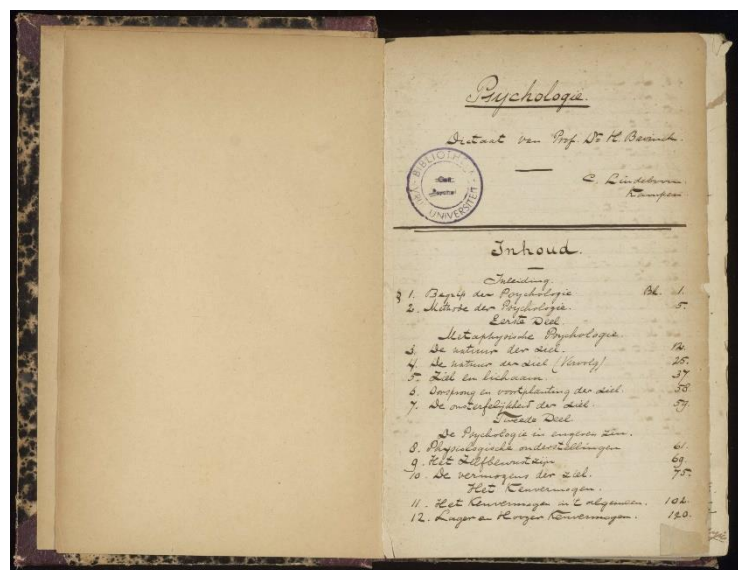 Psychologie.
Dictaat van Prof. Dr H. Bavinck.
BIBLIOTHEEK
VRIJE UNIVERSITEIT
C. Lindeboom
Kampen
Inhoud.
Inleiding.
§ 1. Begrip der Psychologie Bl. 1.
2. Methode der Psychologie. 5.
Eerste Deel.
Metaphysische Psychologie.
3. De natuur der ziel. 12.
4. De natuur der ziel (Vervolg) 25.
5. Ziel en lichaam. 37
6. Oorsprong en voortplanting der ziel. 58
7. De onsterfelijkheid der ziel. 59.
Tweede Deel.
De Psychologie in engeren zin.
8. Physiologische onderstellingen 61.
9. Het Zelfbewustzijn 69.
10. De vermogens der ziel. 75.
Het Kenvermogen.
11. Het Kenvermogen in 't algemeen. 102.
12. Lager en Hooger Kenvermogen. 120.